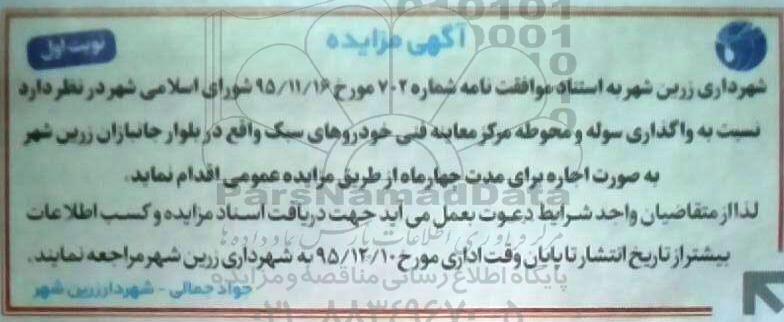 آگهی مزایده
نوبت اول
شهرداری زرین شهر به استناد موافقت نامه شماره ۷۰۲ مورخ ۹۵/۱۱/۱۶ شورای اسلامی شهر در نظر دارد
نسبت به واگذاری سوله و محوطه مرکز معاینه فنی خودروهای سبک واقع در بلوار جانبازان زرین شهر
به صورت اجاره برای مدت چهارماه از طریق مزایده عمومی اقدام نماید.
لذا از متقاضیان واجد شرایط دعوت بعمل می آید جهت دریافت اسناد مزایده و کسب اطلاعات
بیشتر از تاریخ انتشار تا پایان وقت اداری مورخ ۹۵/۱۲/۱۰ به شهرداری زرین شهر مراجعه نمایند.
جواد جمالی - شهردار زرین شهر
ParsNamadData
مرکز فرآوری اطلاعات پارس نماد داده ها
پایگاه اطلاع رسانی مناقصه و مزایده
۰۲۱-۸۸۳۴۹۶۷۰-۵